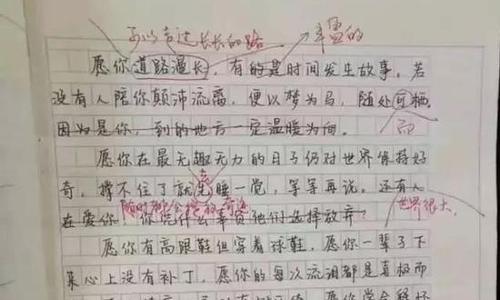 可以走过长长的路
丰盈的
愿你道路漫长，有的是时间发生故事。若
没有人陪你颠沛流离，便以梦为马，随处可栖。
因为是你，到的地方一定温暖为向。
而
愿你在最无趣无力的日子仍对世界保持好
奇，撑不住了就先睡一觉，等等再说。还有人
在爱你，你凭什么辜负他们选择放弃
世界很大
愿你有高跟鞋但穿着球鞋，愿你一辈子下
来心上没有补丁，愿你的每次流泪都是喜极而